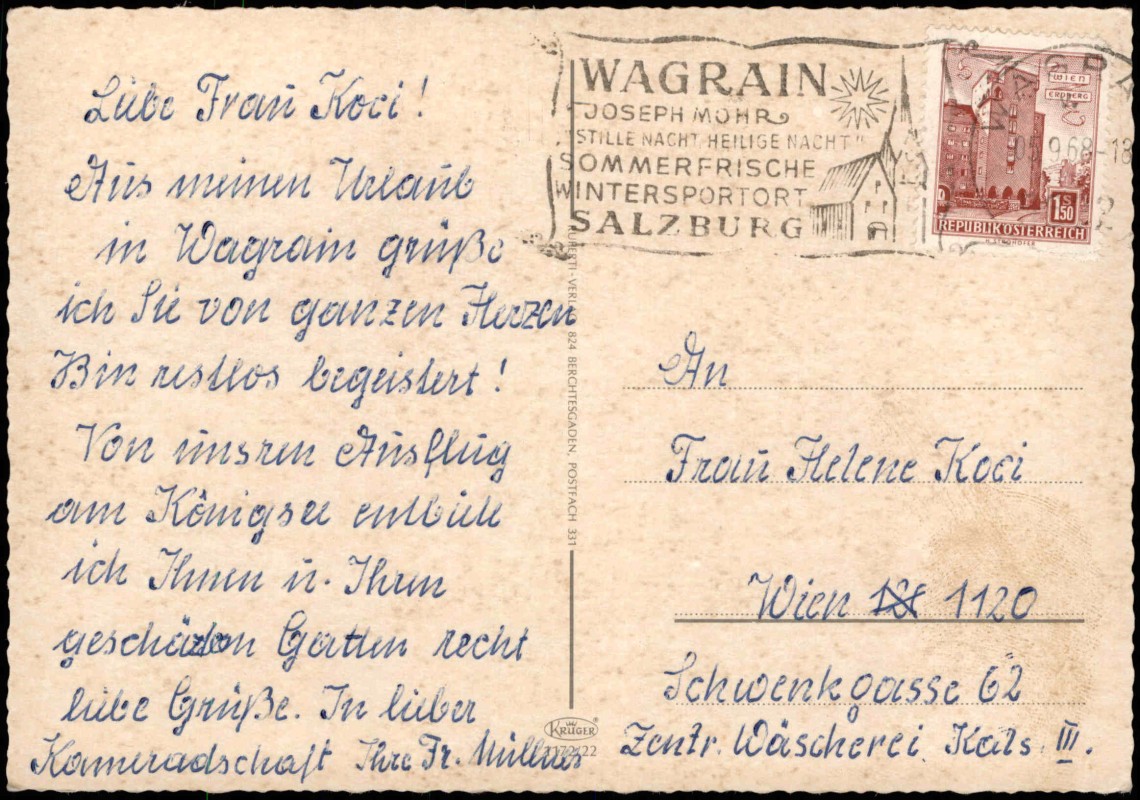 Liebe Frau Koci!
Aus meinen Urlaub
in Wagrain grüße
ich Sie von ganzen Herzen
Bin restlos begeistert!
Von unsren Ausflug
am Königsee entbiete
ich Ihnen u. Ihren
geschäzten Gatten recht
liebe Grüße. In lieber
Kameradschaft Ihre Fr. Müllner
WAGRAIN
JOSEPH MOHR
"STILLE NACHT HEILIGE NACHT"
SOMMERFRISCHE
WINTERSPORTORT
SALZBURG
WAGRA
9.68-18
2
WIEN
ERDBERG
S
1.50
REPUBLIK ÖSTERREICH
VERLAG 824 BERCHTESGADEN, POSTFACH 331
KRÜGER
An
Frau Helene Koci
Wien 1120
Schwenkgasse 62
Zentr. Wäscherei Kats. III.